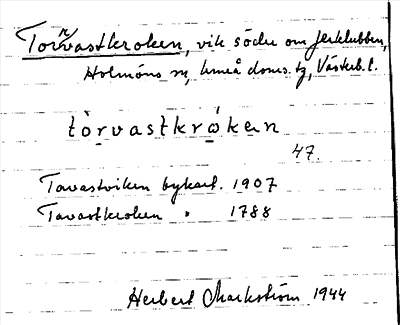 Torrvastkroken, vik söder om Jerklubben,
Holmöns sn, Umeå doms. tg, Västerb. l.
tòrvastkrǫkен
47.
Tavastviken bykart. 1907
Tavastkroken " 1788
Herbert Markström 1944